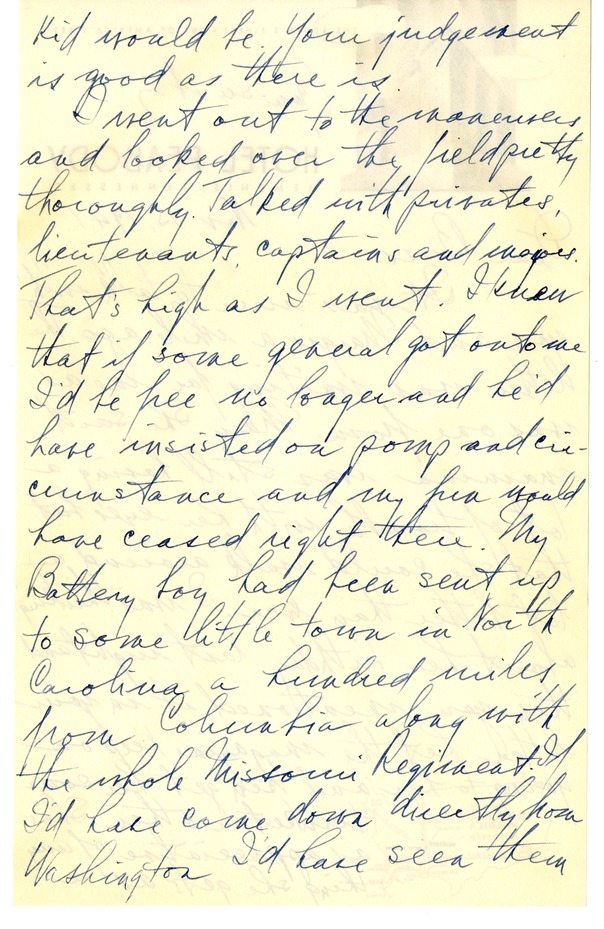 Kid would be. Your judgement
is good as there is.
I went out to the maneuvers
and looked over the field pretty
thoroughly. Talked with privates,
lieutenants, captains and majors.
That's high as I went. I knew
that if some general got onto me
I'd be free no longer and he'd
have insisted on pomp and cir-
cumstance and my fun would
have ceased right there. My
Battery boy had been sent up
to some little town in North
Carolina a hundred miles
from Columbia along with
the whole Missouri Regiment. If
I'd have come down directly from
Washington I'd have seen them